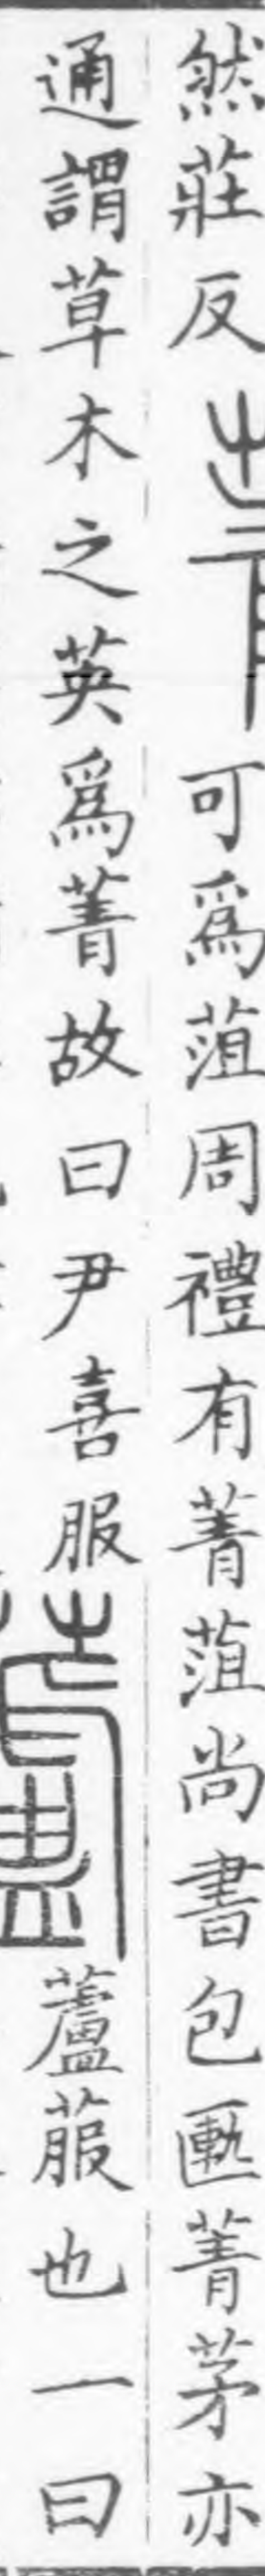 然莊反可爲菹周禮有菁菹尚書包匭菁茅亦
通謂草木之英爲菁故曰尹喜服蘆蘆菔也一曰